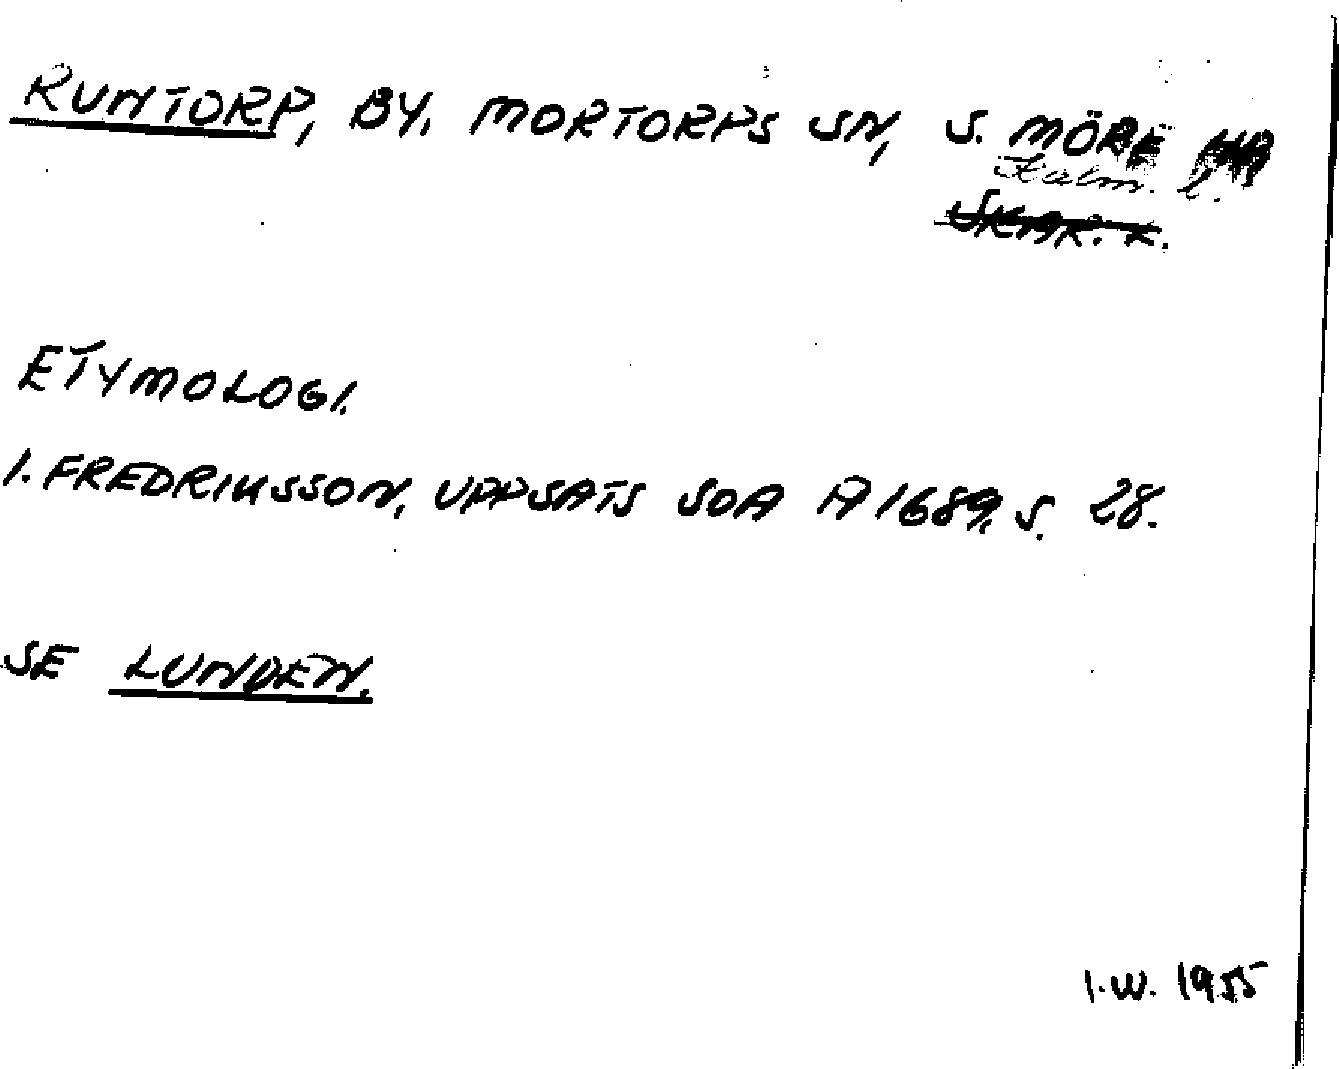 RUNTORP, BY. MORTORPS SN, S. MÖRE HD
Kalm. l.
SKAR. K.
ETYMOLOGI.
I. FREDRIKSSON, UPPSATS SOA A 1689, S. 28.
SE LUNDEN.
I.W. 1955